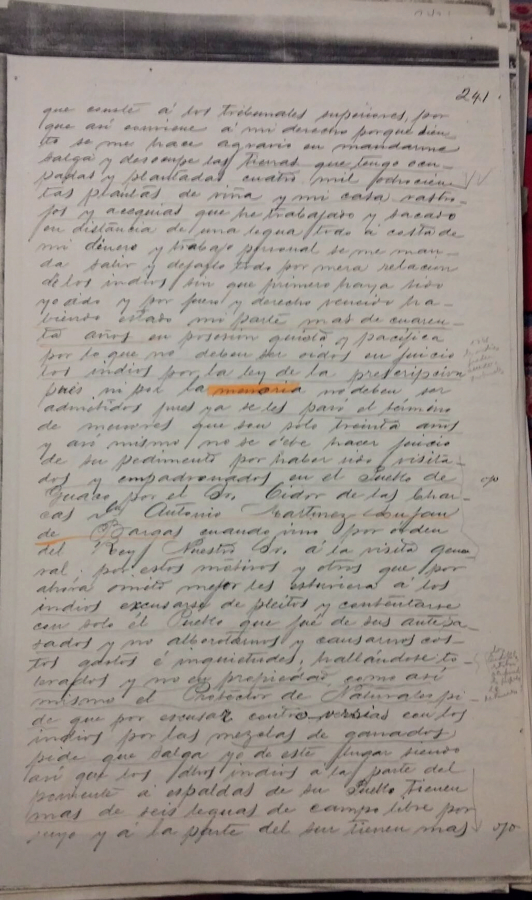 241.
que conste á los tribunales superiores, por
que así conviene á mi derecho porque sien-
to se me hace agravio en mandarme
salga y desocupe las tierras que tengo ocu-
padas y plantadas cuatro mil
tas plantas de viña y mi casa rastro-
jos y acequias que he trabajado y sacado
en distancia de una legua todo á costa de
mi dinero y trabajo personal se me man-
da salir y dejarlo todo por mera relacion
de los indios sin que primero haya sido
yo oido y por fuero y derecho vencido ha-
biendo estado mi parte mas de cuaren-
ta años en posesion quieta y pacífica
por lo que no deben ser oidos en juicio
los indios por la ley de la prescripcion
pues ni por la memoria no deben ser
admitidos pues ya se les pasó el término
de menores que son solo treinta años
y así mismo no se debe hacer juicio
de su pedimento por haber sido visita-
dos y empadronados en el Pueblo de
por el Sr. Oidor de las Char-
cas Dn Antonio Martinez Lujan
de Bargas cuando vino por orden
del Rey Nuestro Sr. á la visita gene-
ral, por estos motivos y otros que por
ahora omito mejor les estuviera á los
indios excusarse de pleitos y contentarse
con solo el Pueblo que fue de sus antepa-
sados y no alborotarnos y causarnos cos-
tos gastos é inquietudes, hallándose to-
lerados y no en propiedad como así
mismo el Protector de Naturales pi-
de que por escusar controversias con los
indios por las mezclas de ganados
pide que salga yo de este lugar siendo
así que los dhos indios a la parte del
poniente á espaldas de su Pueblo tienen
mas de seis leguas de campo libre por
suyo y á la parte del sur tienen mas